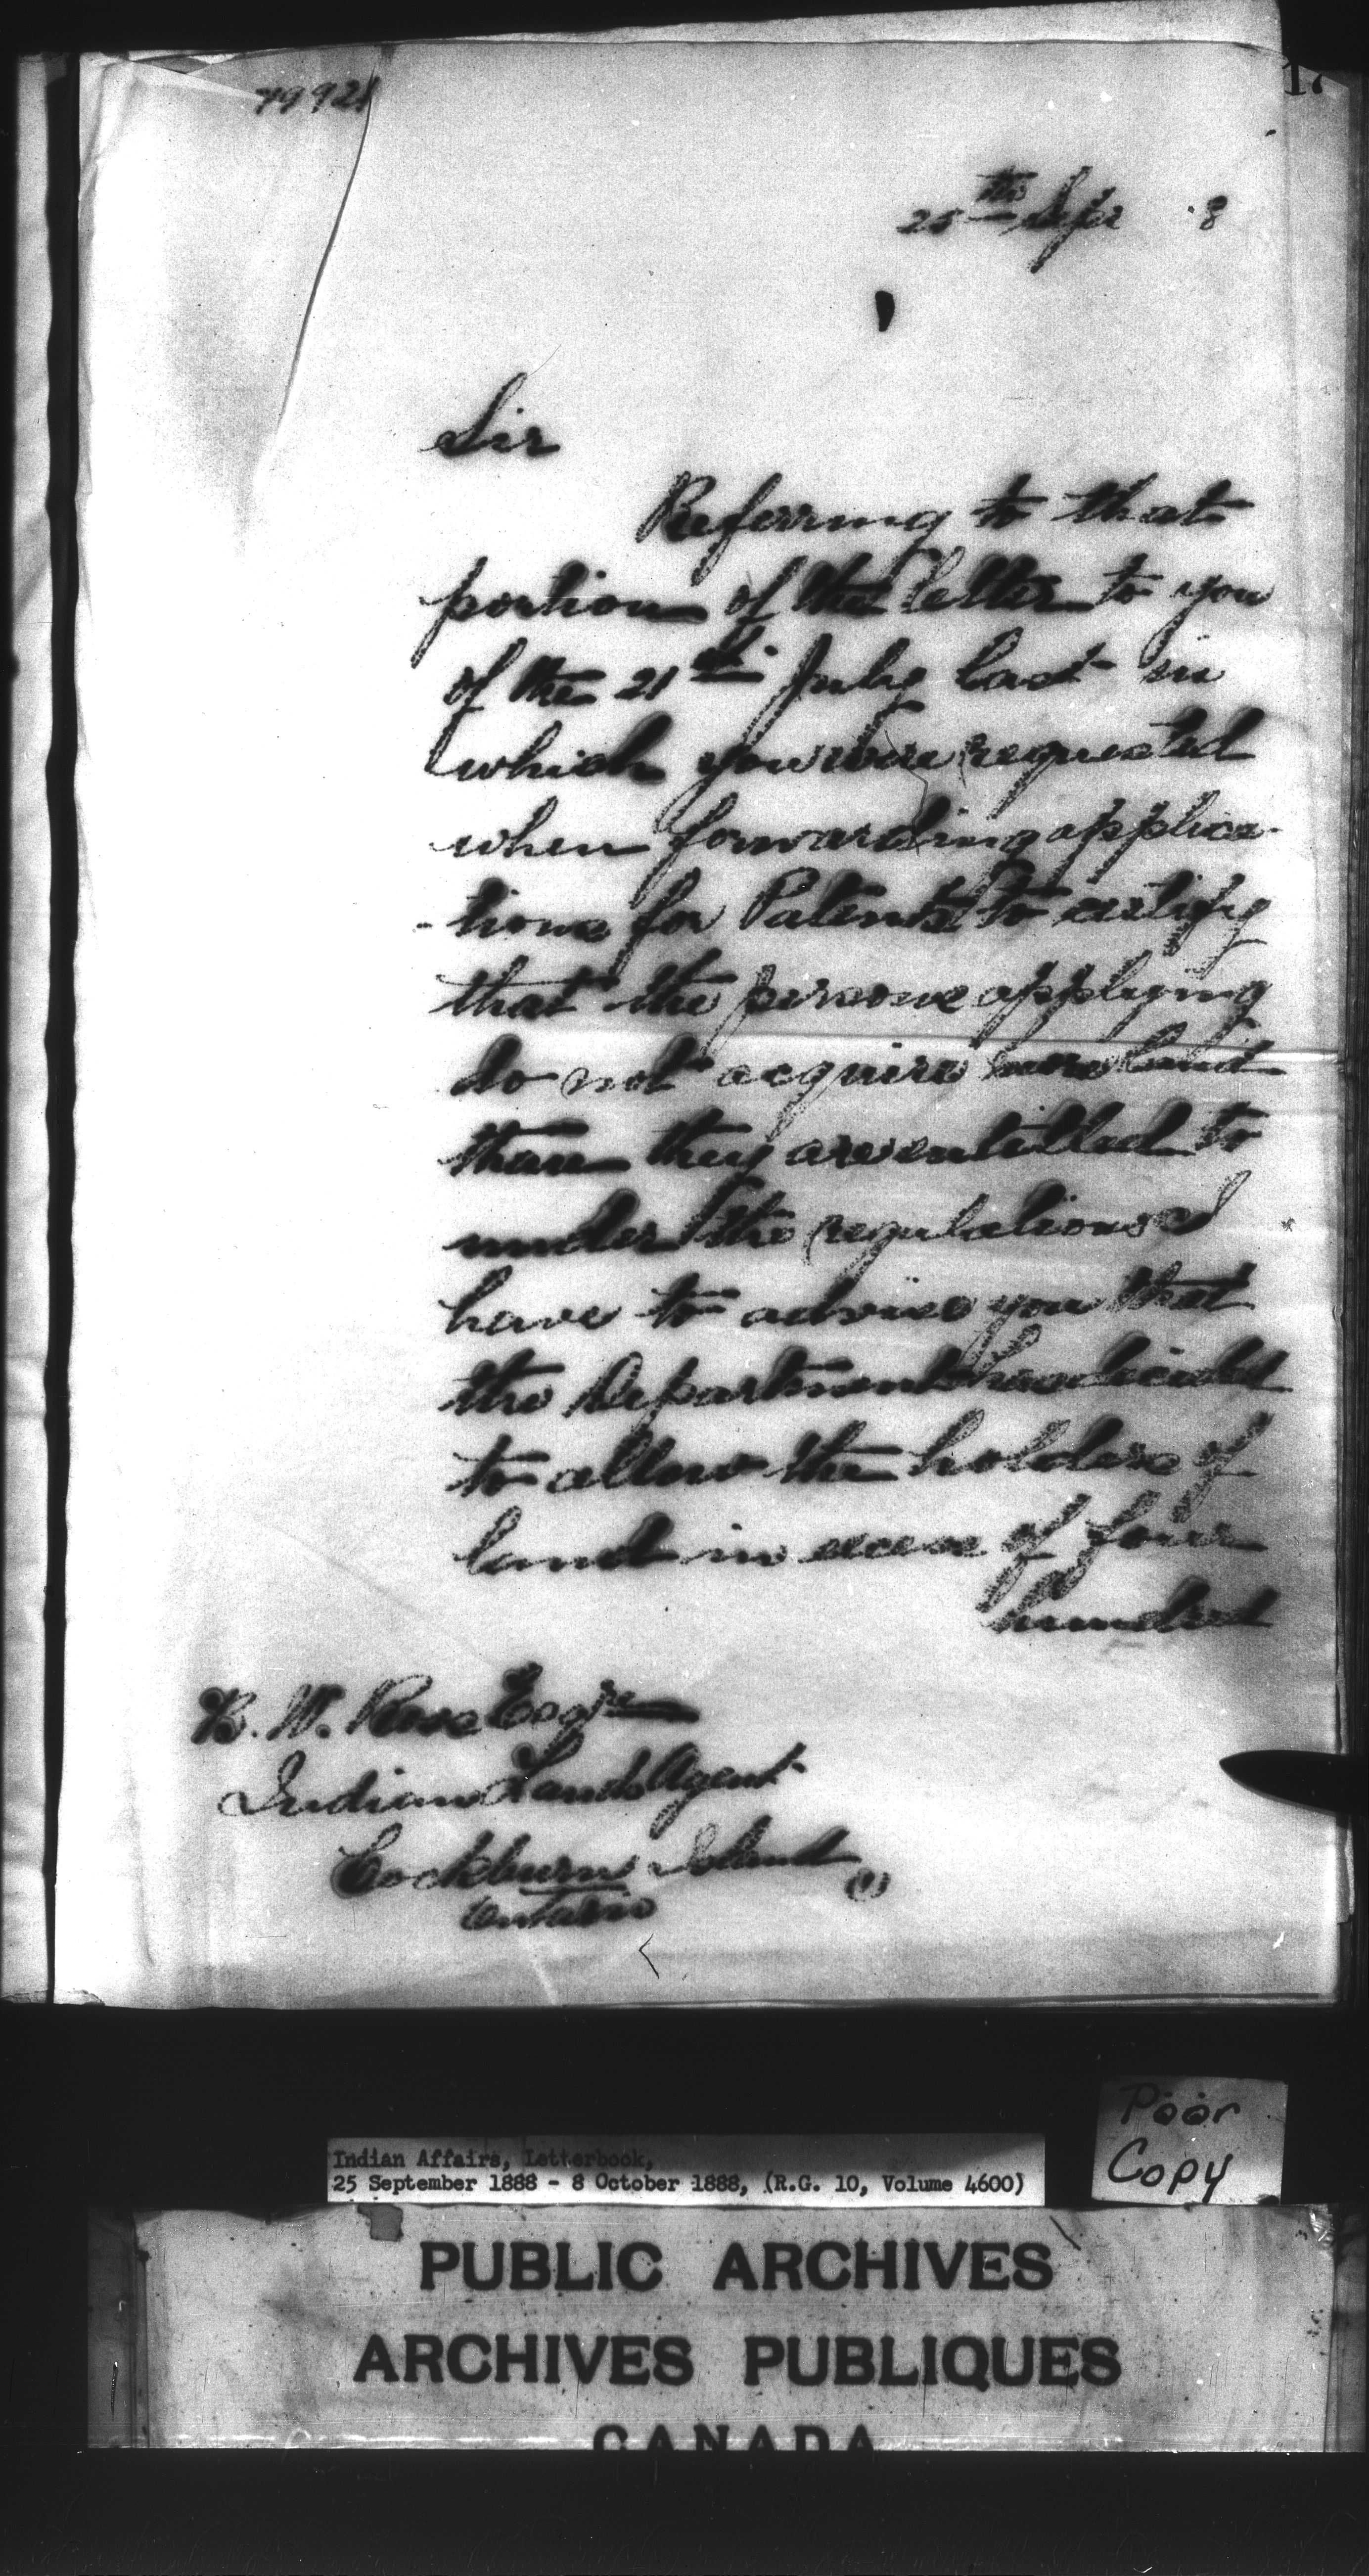 79921
17
25th Sept 8
Sir
Referring to that
portion of the letter to you
of the 21st July last in
which you were requested
when forwarding applica-
-tions for Patents to certify
that the persons applying
do not acquire more land
than they are entitled to
under the regulations I
have to advise you that
the Department has decided
to allow the holders of
land in excess of four
hundred
B. W. Ross Esqre
Indian Lands Agent
Cockburn Island
Ontario
(1)
Poor
Copy
Indian Affairs, Letterbook,
25 September 1888 - 8 October 1888, (R.G. 10, Volume 4600)
PUBLIC ARCHIVES
ARCHIVES PUBLIQUES
CANADA